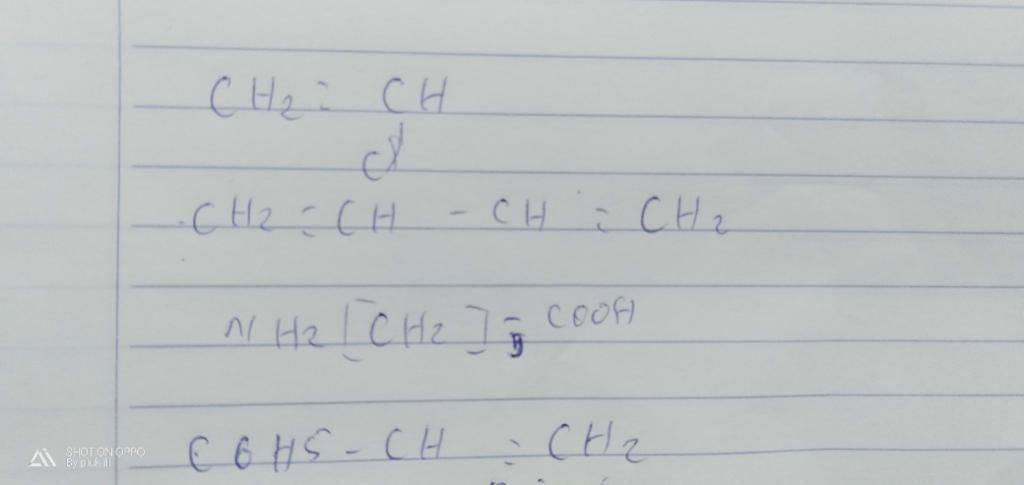 CH2 = CH
Cl
CH2 = CH - CH = CH2
NH2 [CH2]5 - COOH
C6H5 - CH = CH2
SHOT ON OPPO